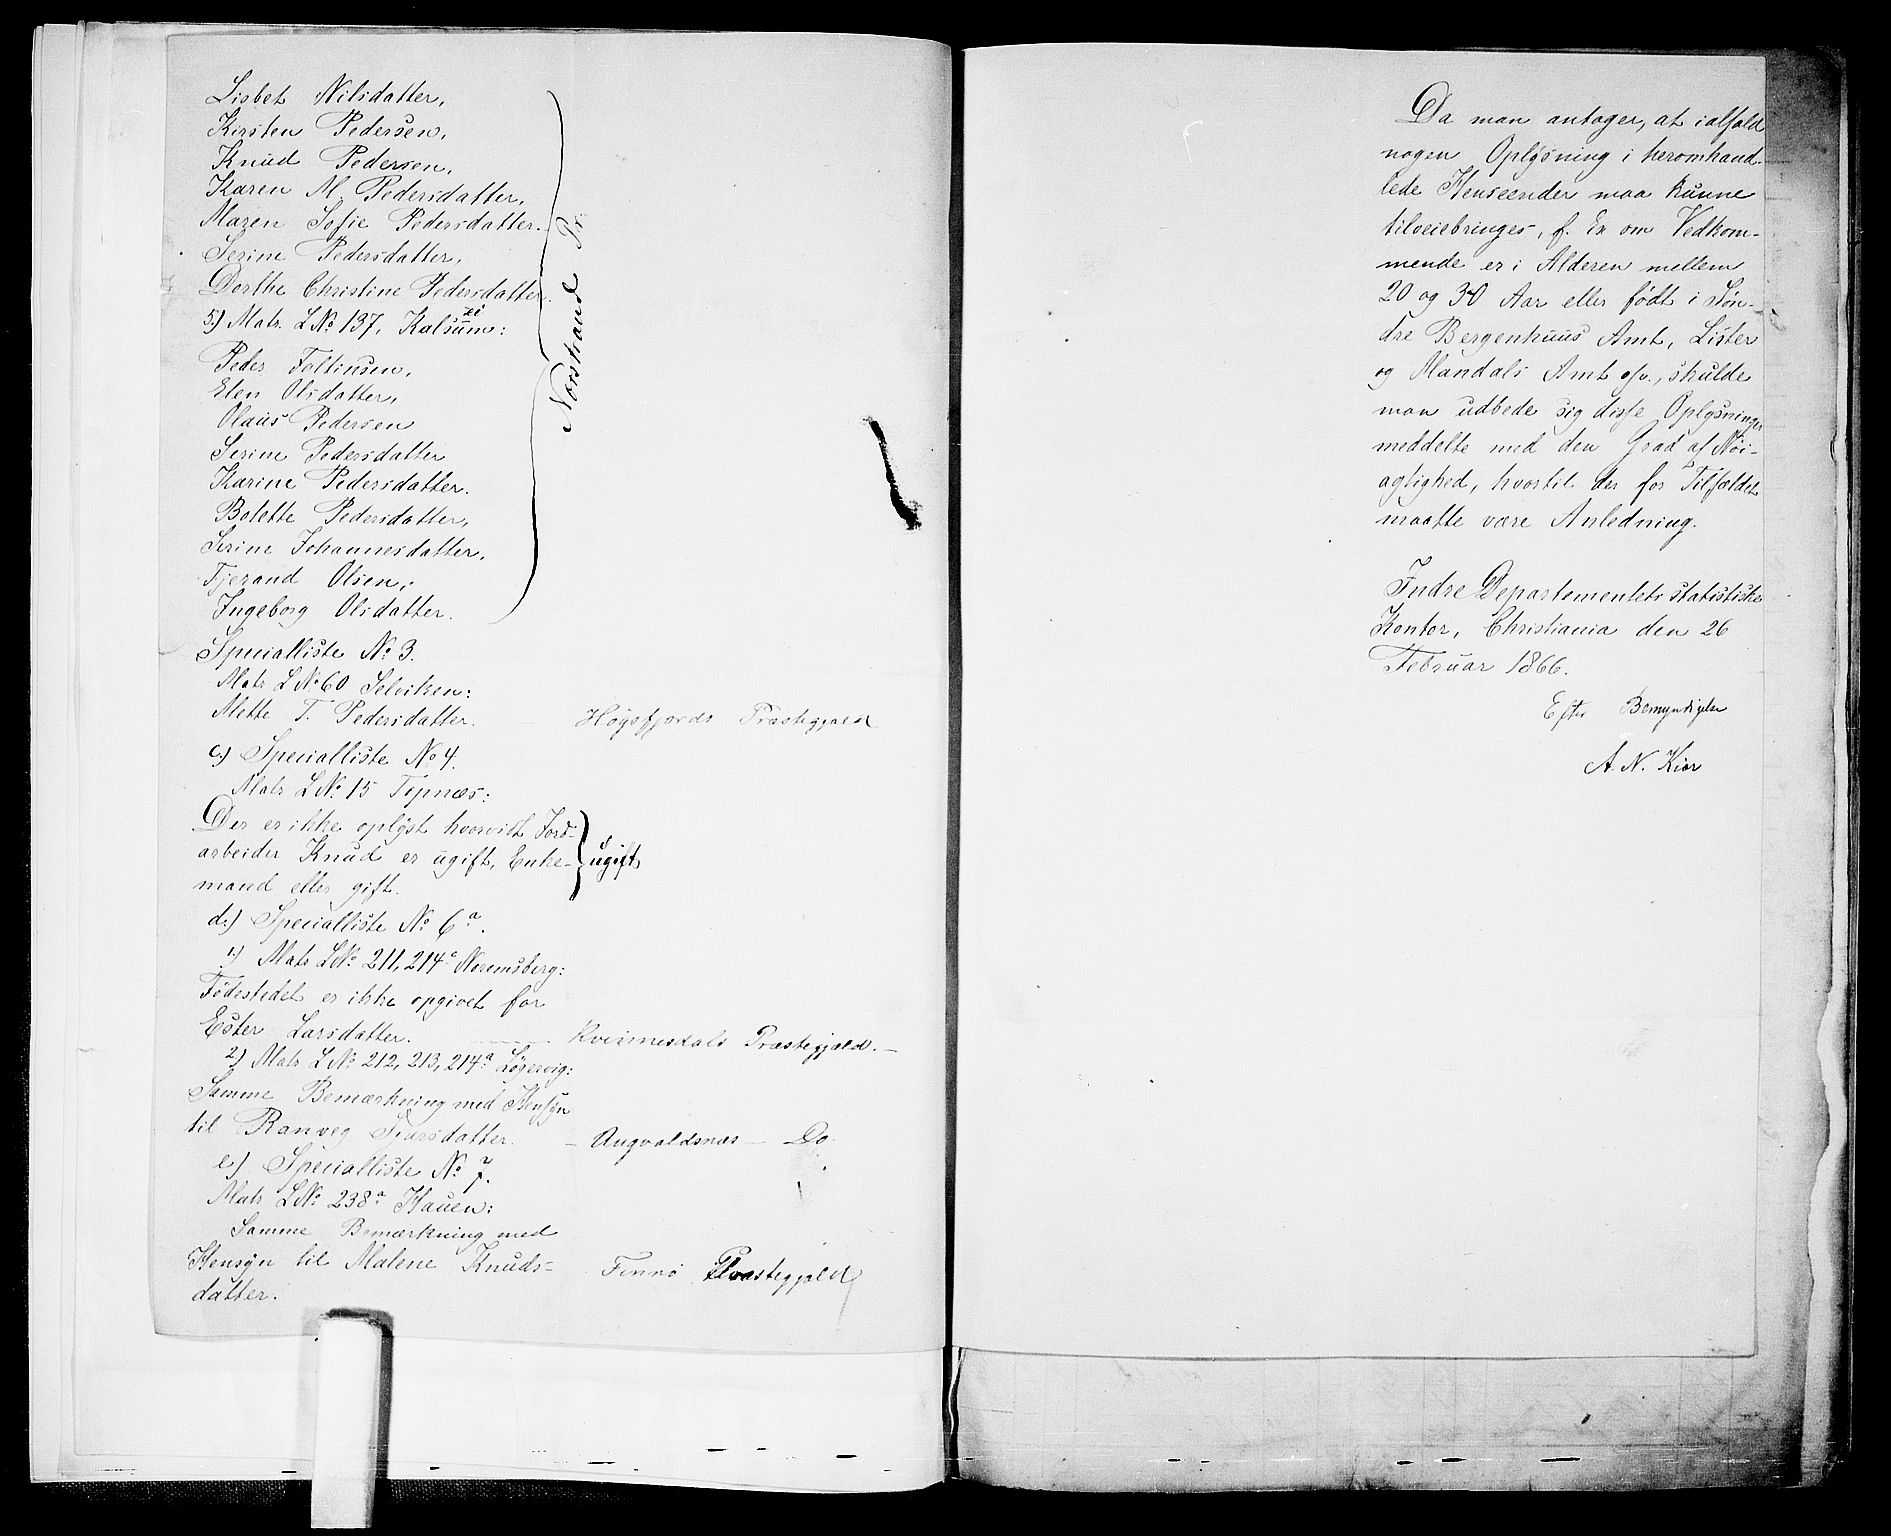 Lisbet Nilsdatter,
Kirsten Pedersen,
Knud Pedersen,
Karen M. Pedersdatter,
Maren Sofie Pedersdatter.
Serine Pedersdatter,
Dorthe Christine Pedersdatter.
5) Matr. L№ 137, Kalsüm:
Peder Foltinsen,
Elen Olsdatter,
Olaus Pedersen
Serine Pedersdatter
Karine Pedersdatter.
Bolette Pedersdatter,
Serine Johannesdatter,
Tjerand Olsen,
Ingeborg Olsdatter.
Norstrand Pr.
Specialliste No 3.
Matr L№ 60 Selviken:
Mette T. Pedersdatter. Høgsfjords Præstegjæld
c.) Specialliste No 4.
Matr L№ 15 Topnæs:
Der er ikke oplyst hvorvidt Jord-
arbeider Knud er ugift, Enke-
mand eller gift.
ugift
d.) Specialliste No 6a.
1.) Matr L№ 211, 214c Noremsberg:
Fødestedet er ikke opgivet for
Ester Larsdatter. Kvinnesdals Præstegjæld. —
2) Matr L№ 212, 213, 214a Løgervig:
Samme Bemærkning med Hensyn
til Ranveg Ivarsdatter. — Augvaldsnæs — Do
e) Specialliste No 7.
Matr L№ 238a Hauen:
Samme Bemærkning med
Hensyn til Malene Knuds- Finnø Præstegjæld
datter.
Da man antager, at ialfald
nogen Oplysning i heromhand-
lede Henseender maa kunne
tilveiebringes, f. Ex om Vedkom-
mende er i Alderen mellem
20 og 30 Aar eller født i Søn-
dre Bergenhuus Amt, Lister
og Mandals Amt osv., skulde
man udbede sig disse Oplysninger
meddelte med den Grad af Nøi-
agtighed, hvortil der for Tilfældet
maatte være Anledning.
Indre Departementets statistiske
Kontor, Christiania den 26
Februar 1866.
Efter Bemyndigelse
A. N. Kiær